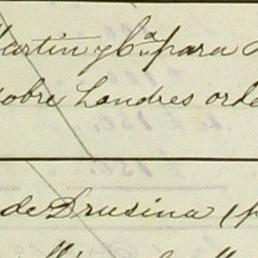 Martin y Ca. para
sobre Londres orde
de Drusina (p